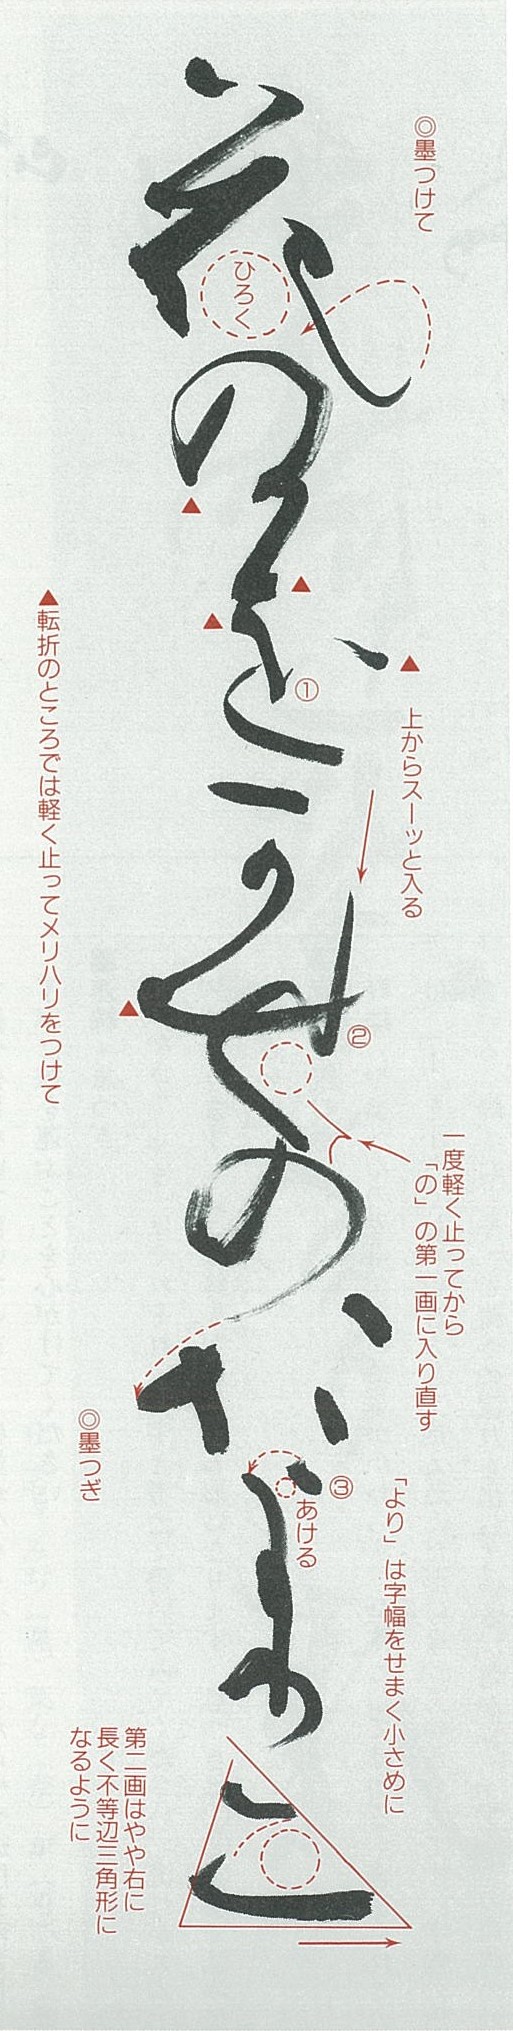 ◎墨つけて
▲上からスーッと入る
一度軽く止ってから
「の」の第一画に入り直す
「より」は字幅をせまく小さめに
花のかをかせのたよりに
ひろく
①
②
③
あける
◎墨つぎ
第二画はやや右に
長く不等辺三角形に
なるように
▲転折のところでは軽く止ってメリハリをつけて